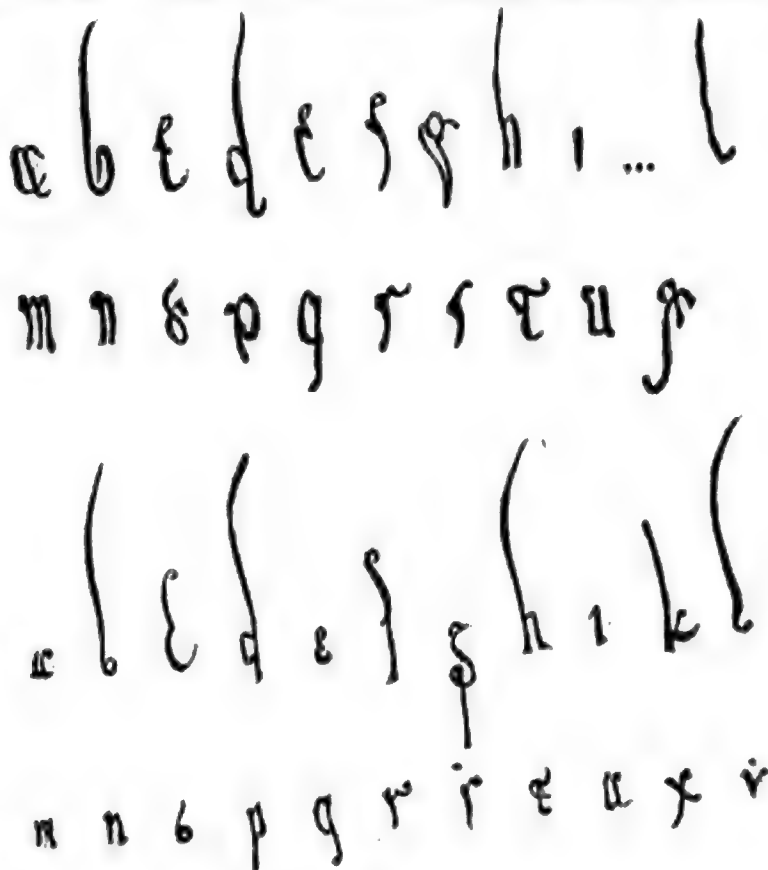 a b c d e f g h i ... l
m n o p q r s t u
a b c d e f g h i k l
m n o p q r s t u x y